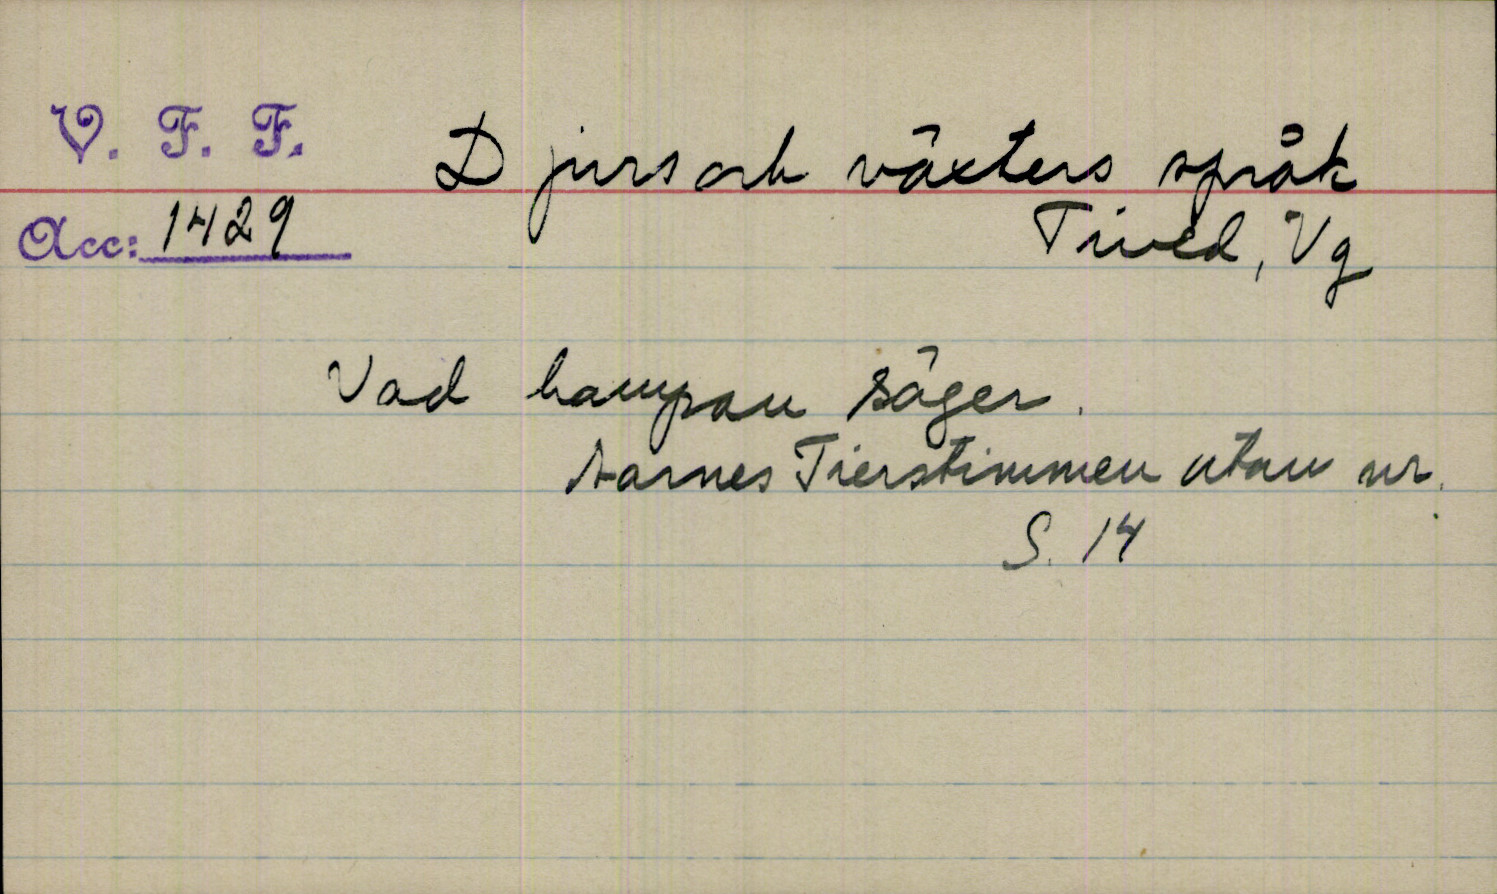 V. F. F. Djurs och växters språk
Acc: 1429 Tived, Vg
Vad hampan säger.
Aarnes Tierstimmen utan nr.
S. 14